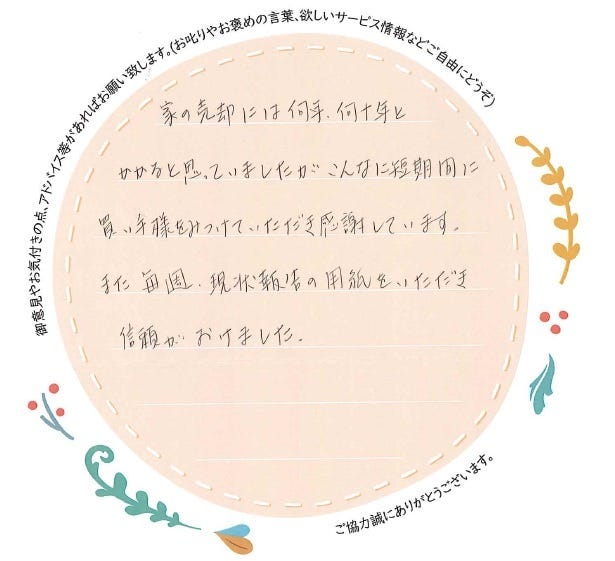 御意見やお気付きの点、アドバイス等があればお願い致します。(お叱りやお褒めの言葉、欲しいサービス情報などご自由にどうぞ)
家の売却には何年、何十年と
かかると思っていましたが こんなに短期間に
買い手様をみつけていただき感謝しています。
また 毎週、現状報告の用紙をいただき
信頼が おけました。
ご協力誠にありがとうございます。